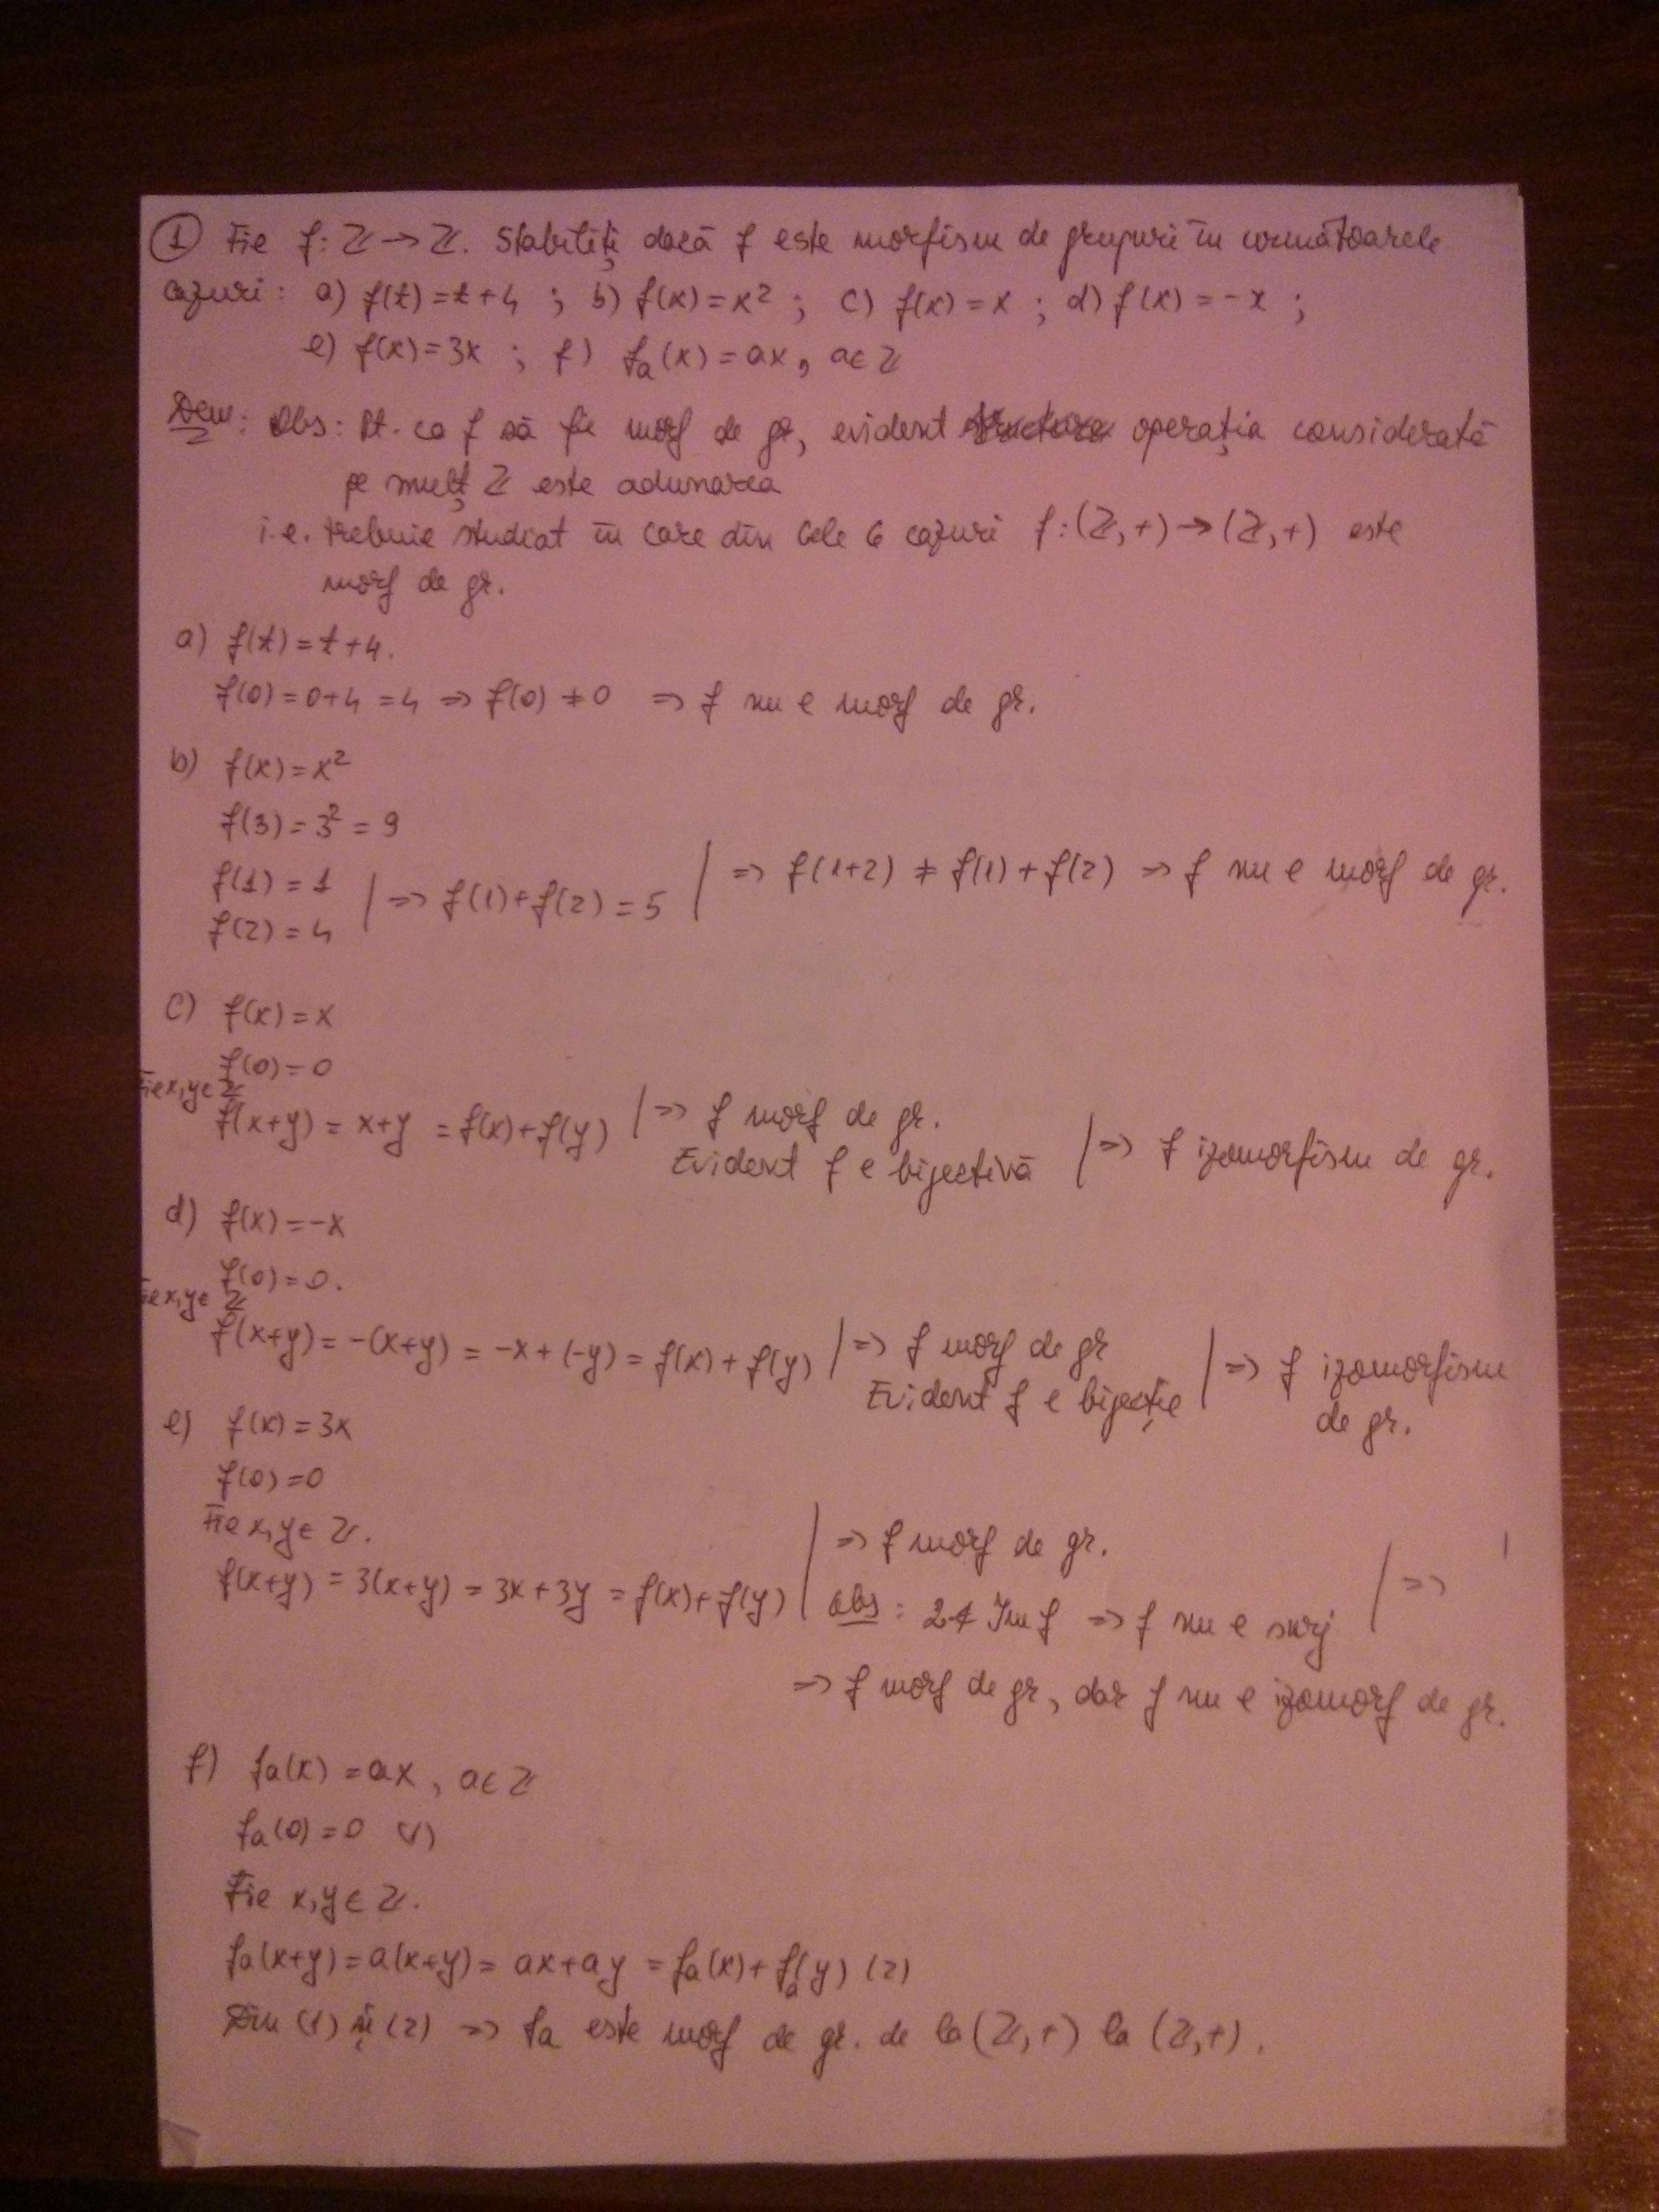 ① Fie f: ℤ → ℤ. Stabiliți dacă f este morfism de grupuri în următoarele
cazuri: a) f(t) = t+4 ; b) f(x) = x² ; c) f(x) = x ; d) f(x) = -x ;
e) f(x) = 3x ; f) fₐ(x) = ax, a∈ℤ
Dem: Obs: Pt. ca f să fie morf de gr, evident operația considerată
pe mulț ℤ este adunarea
i.e. trebuie studiat în care din cele 6 cazuri f: (ℤ,+) → (ℤ,+) este
morf de gr.
a) f(t) = t+4.
f(0) = 0+4 = 4 => f(0) ≠ 0 => f nu e morf de gr.
b) f(x) = x²
f(3) = 3² = 9
f(1) = 1
f(2) = 4 | => f(1)+f(2) = 5 | => f(1+2) ≠ f(1) + f(2) => f nu e morf de gr.
c) f(x) = x
f(0) = 0
Fie x,y∈ ℤ
f(x+y) = x+y = f(x)+f(y) | => f morf de gr.
Evident f e bijectivă | => f izomorfism de gr.
d) f(x) = -x
f(0) = 0.
Fie x,y∈ ℤ
f(x+y) = -(x+y) = -x + (-y) = f(x) + f(y) | => f morf de gr
Evident f e bijecție | => f izomorfism
de gr.
e) f(x) = 3x
f(0) = 0
Fie x,y∈ ℤ.
f(x+y) = 3(x+y) = 3x+3y = f(x)+f(y) | => f morf de gr.
Obs: 2∉ Im f => f nu e surj | =>
=> f morf de gr, dar f nu e izomorf de gr.
f) fₐ(x) = ax, a∈ℤ
fₐ(0) = 0 (1)
Fie x,y∈ ℤ.
fₐ(x+y) = a(x+y) = ax+ay = fₐ(x) + fₐ(y) (2)
Din (1) și (2) => fₐ este morf de gr. de la (ℤ,+) la (ℤ,+).